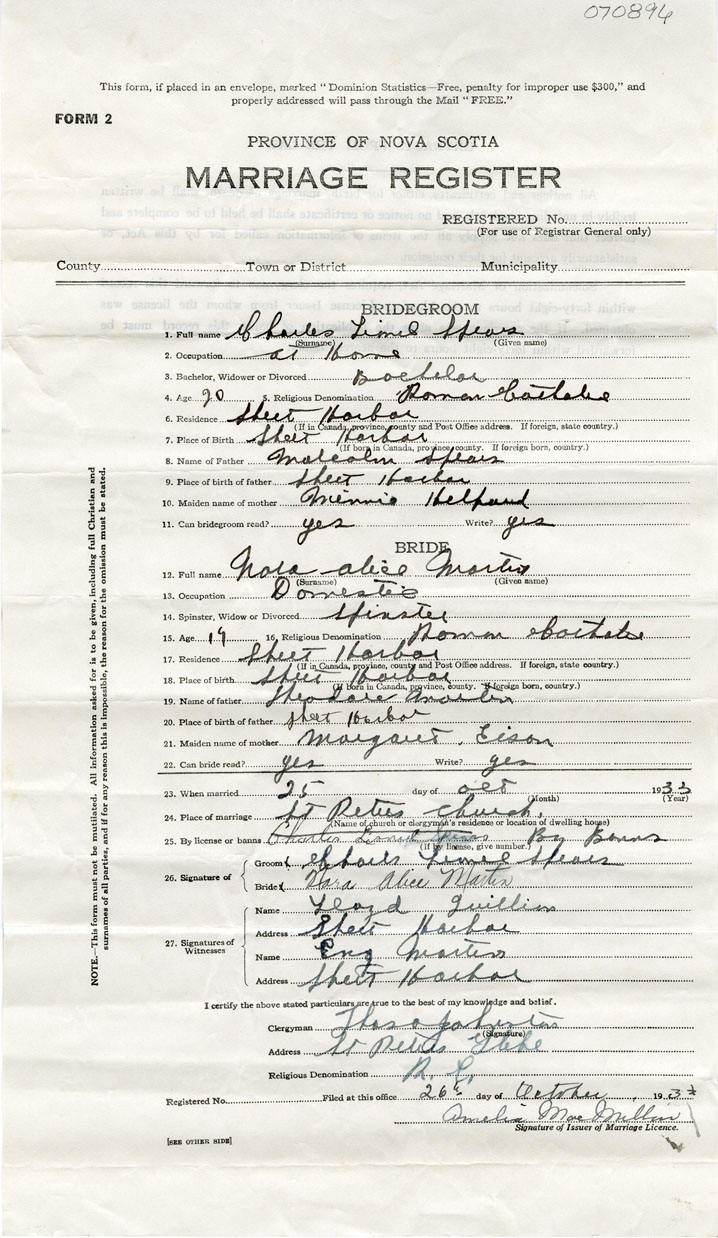 070894
This form, if placed in an envelope, marked "Dominion Statistics—Free, penalty for improper use $300," and
properly addressed will pass through the Mail "FREE."
FORM 2
PROVINCE OF NOVA SCOTIA
MARRIAGE REGISTER
REGISTERED No.
(For use of Registrar General only)
County Town or District Municipality
BRIDEGROOM
1. Full name Charles Lionel Spears
(Surname) (Given name)
2. Occupation at Home
3. Bachelor, Widower or Divorced Bachelor
4. Age 20 5. Religious Denomination Roman Catholic
6. Residence Sheet Harbor
(If in Canada, province, county and Post Office address. If foreign, state country.)
7. Place of Birth Sheet Harbor
(If born in Canada, province, county. If foreign born, country.)
8. Name of Father Malcolm Spears
9. Place of birth of father Sheet Harbor
10. Maiden name of mother Minnie
11. Can bridegroom read? yes Write? yes
BRIDE
12. Full name Nora Alice Martin
(Surname) (Given name)
13. Occupation Domestic
14. Spinster, Widow or Divorced Spinster
15. Age 19 16. Religious Denomination Roman Catholic
17. Residence Sheet Harbor
(If in Canada, province, county and Post Office address. If foreign, state country.)
18. Place of birth Sheet Harbor
(If born in Canada, province, county. If foreign born, country.)
19. Name of father Theodore Martin
20. Place of birth of father Sheet Harbor
21. Maiden name of mother Margaret Eison
22. Can bride read? yes Write? yes
23. When married 25 day of Oct 1933
(Month) (Year)
24. Place of marriage St Peters Church,
(Name of church or clergyman's residence or location of dwelling house)
25. By license or banns Charles Lionel Spears By Banns
(If by license, give number.)
26. Signature of
Groom Charles Lionel Spears
Bride Nora Alice Martin
27. Signatures of
Witnesses
Name Lloyd
Address Sheet Harbor
Name Martin
Address Sheet Harbor
I certify the above stated particulars are true to the best of my knowledge and belief.
Clergyman
(Signature)
Address St Peters
Religious Denomination R. C.
Registered No. Filed at this office 26th day of October 193
Amelia MacMillan
Signature of Issuer of Marriage Licence.
[SEE OTHER SIDE]
NOTE.—This form must not be mutilated. All information asked for is to be given, including full Christian and
surnames of all parties, and if for any reason this is impossible, the reason for the omission must be stated.